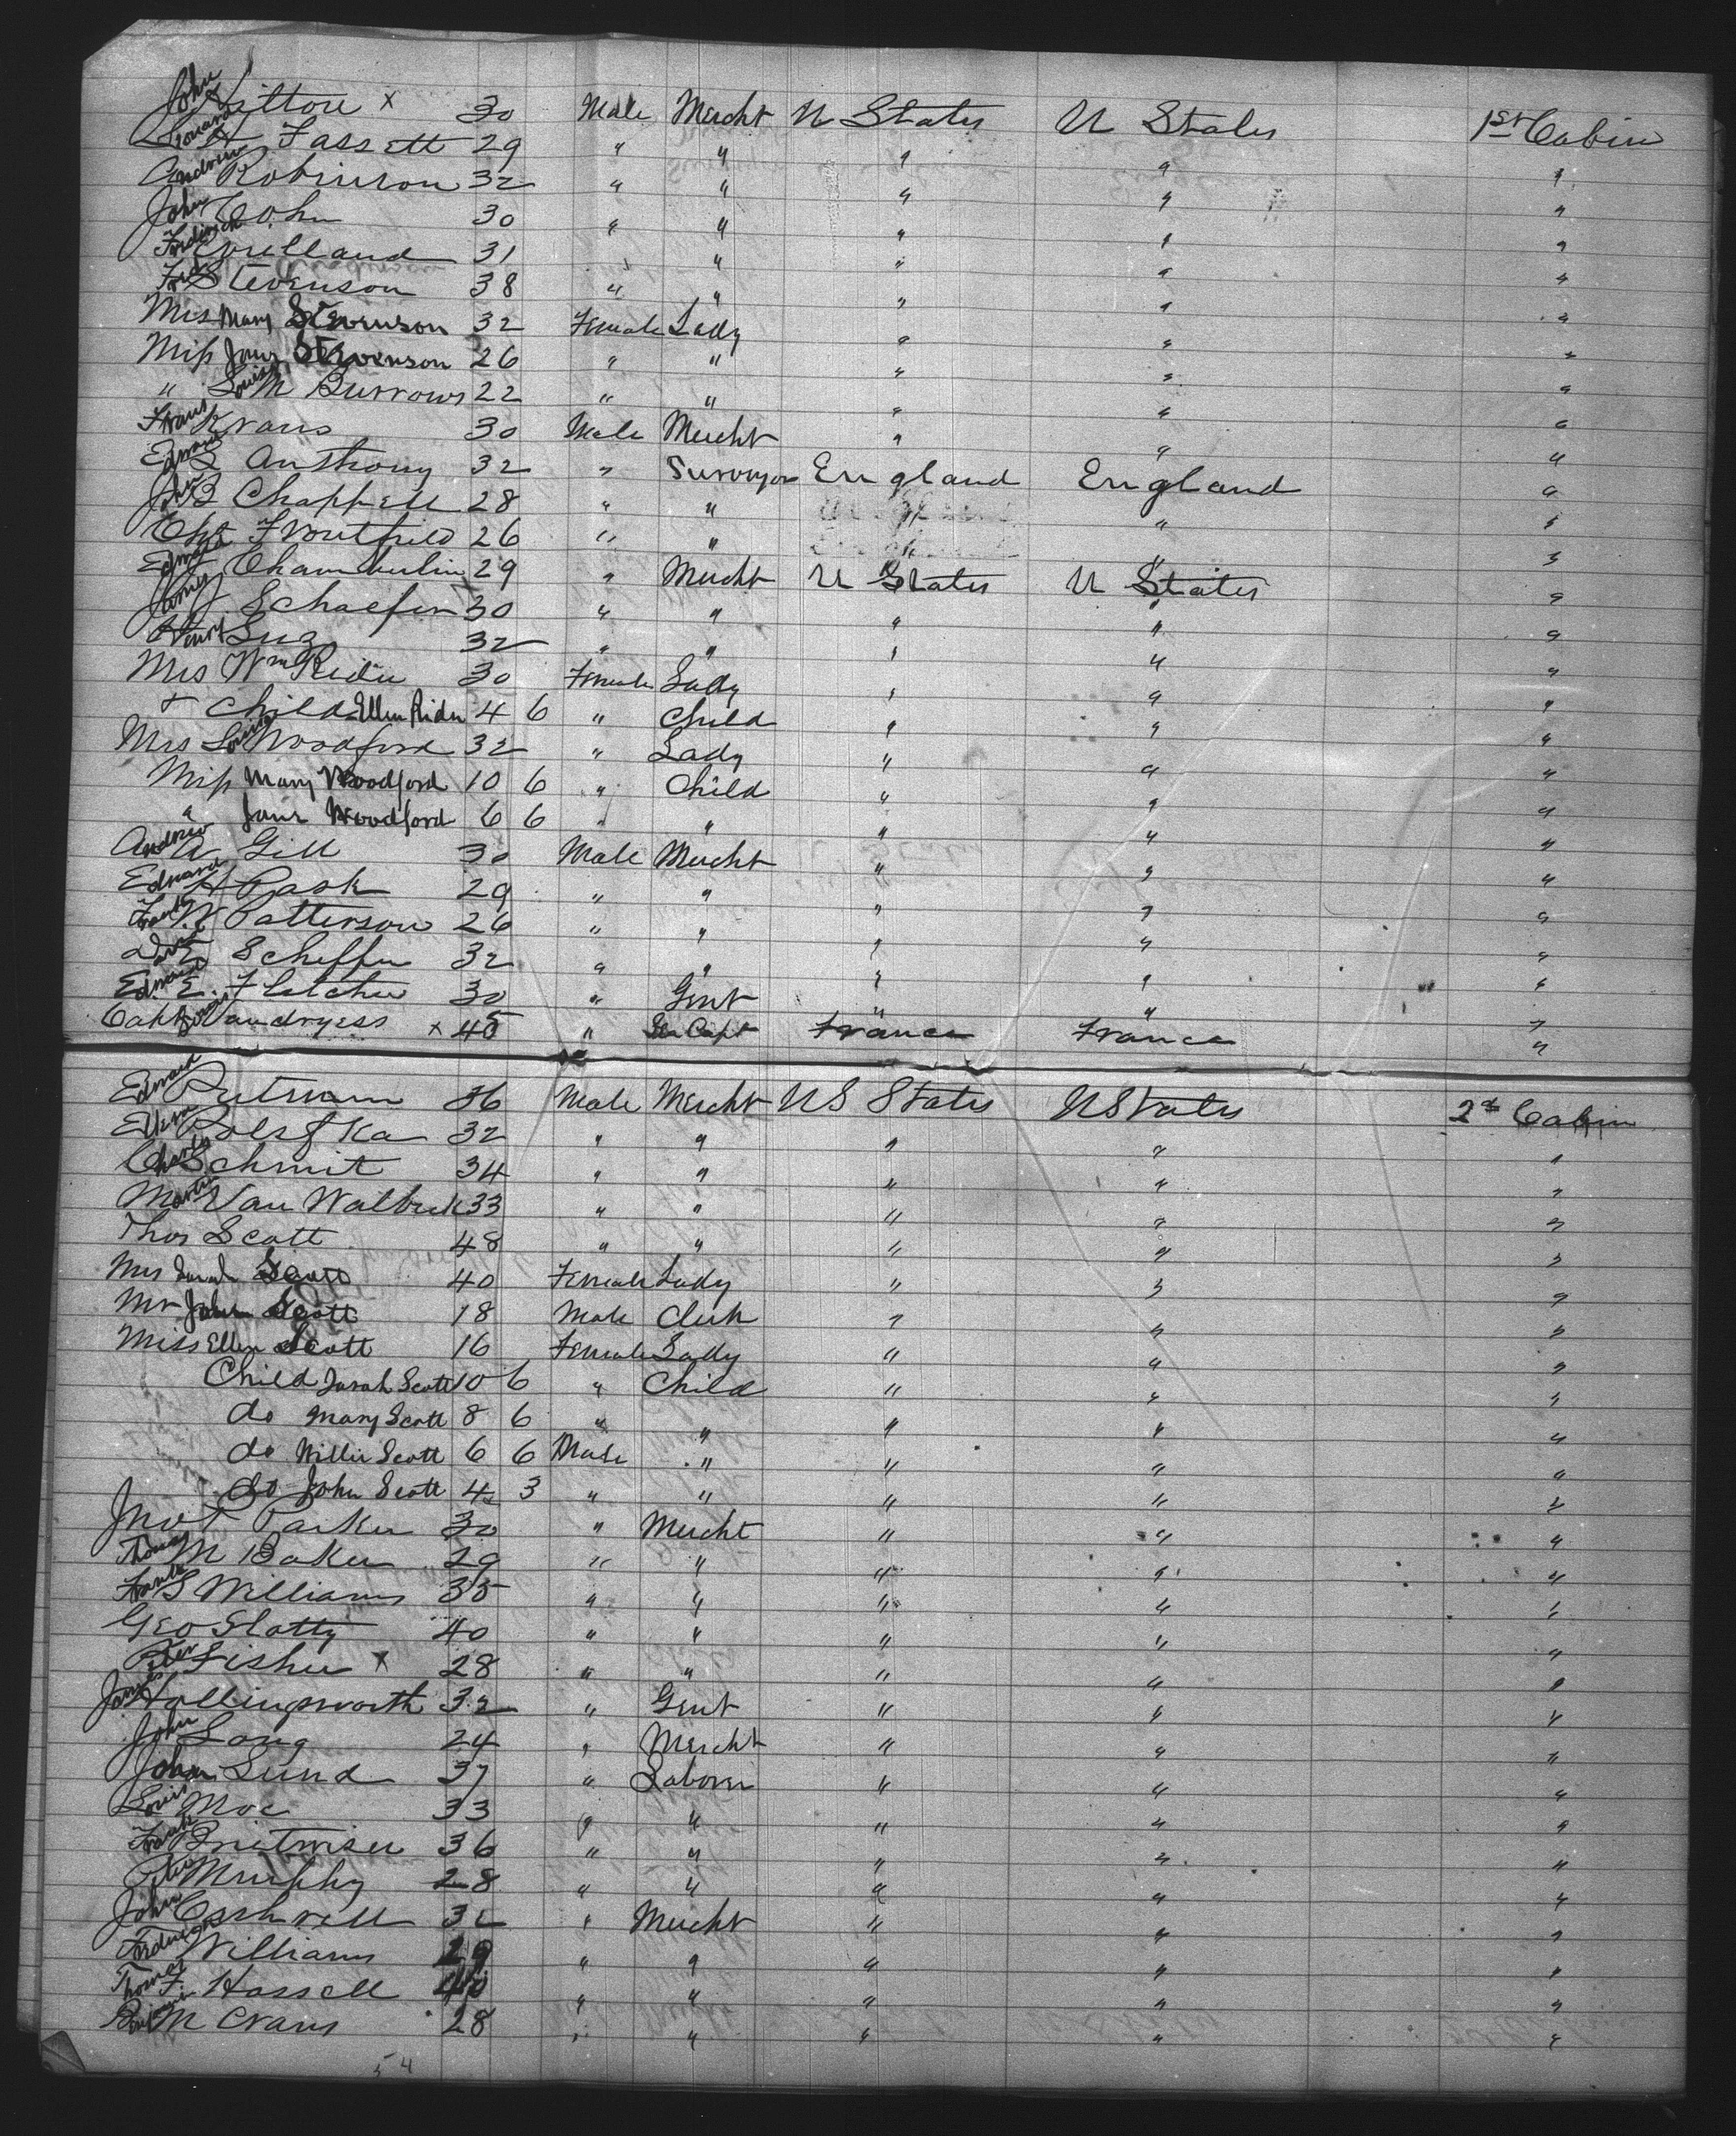 John Sitton x 30 Male Mercht U States U States 1st Cabin
H Fassett 29 " " " " "
Andrew Robinson 32 " " " " "
John Cohn 30 " " " " "
31 " " " " "
Fred Stevenson 38 " " " " "
Mrs Mary Stevenson 32 Female Lady " " "
Miss Jane Stevenson 26 " " " " "
" Louisa M Burrows 22 " " " " "
Evans 30 Male Mercht " " "
Edward L Anthony 32 " Surveyor England England "
John B Chappell 28 " " " " "
26 " " " " "
Edward Chamberlin 29 " Mercht U States U States "
J. Schaefer 30 " " " " "
Henry Luz 32 " " " " "
Mrs Wm Rider 30 Female Lady " " "
+ Child Ellen Rider 4 6 " Child " " "
Mrs Louisa Woodford 32 " Lady " " "
Miss Mary Woodford 10 6 " Child " " "
" Jane Woodford 6 6 " " " " "
Andrew A Gill 30 Male Mercht " " "
Edward H Pask 29 " " " " "
Frank W Patterson 26 " " " " "
Scheffer 32 " " " " "
Edward E. Fletcher 30 " Gent " " "
Capt Louis Vandryess x 45 " Sea Capt France France "
Edward Putnam 36 Male Mercht US States U States 2d Cabin
32 " " " " "
Charles Schmit 34 " " " " "
Martin Van Walbeck 33 " " " " "
Thos Scott 48 " " " " "
Mrs Sarah Scott 40 Female Lady " " "
Mr John Scott 18 Male Clerk " " "
Miss Ellen Scott 16 Female Lady " " "
Child Sarah Scott 10 6 " Child " " "
do Mary Scott 8 6 " " " " "
do Willie Scott 6 6 Male " " " "
do John Scott 4 3 " " " " "
Jno T Parker 30 " Mercht " " "
Thomas M Baker 29 " " " " "
Frank S Williams 35 " " " " "
Geo Slatty 40 " " " " "
Peter Fisher x 28 " " " " "
James Hollingsworth 32 " Gent " " "
John Long 24 " Mercht " " "
John Lund 37 " Laborer " " "
Louis Moe 33 " " " " "
Frank Breitwiser 36 " " " " "
Peter Murphy 28 " " " " "
John Cashwell 32 " Mercht " " "
Williams 29 " " " " "
Thomas F. Hassell 40 " " " " "
Benjamin M Evans 28 " " " " "
54